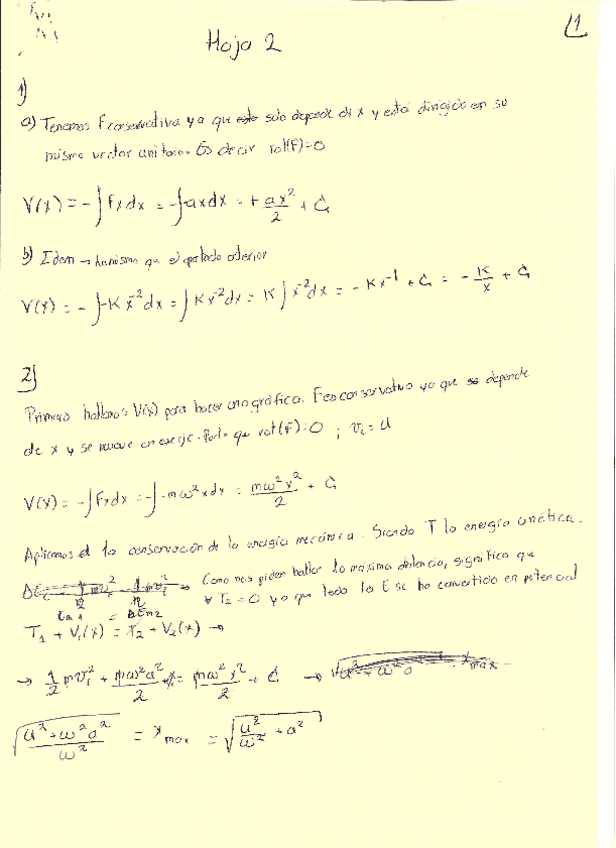 Hoja 2
1
1)
a) Tenemos F conservativa ya que solo depende de x y está dirigido en su
mismo vector unitario. Es decir rot(F)=0
V(x) = -∫Fxdx = -∫axdx = + ax²/2 + C₁
b) Idem → lo mismo que el apartado anterior
V(x) = -∫-Kx⁻²dx = ∫Kx⁻²dx = K∫x⁻²dx = -Kx⁻¹ + C₁ = -K/x + C₁
2)
Primero hallamos V(x) para hacer una gráfica. F es conservativo ya que se depende
de x y se mueve en ese eje. Por lo que rot(F)=0 ; v₁ = u
V(x) = -∫Fxdx = -∫-mω²xdx = mω²x²/2 + C₁
Aplicamos el la conservación de la energía mecánica. Siendo T la energía cinética.
→ Como nos piden hallar la máxima distancia, significa que
T₂=0 ya que toda la E se ha convertido en potencial
Em1 = Em2
T₁ + V₁(x) = T₂ + V₂(x) →
→ 1/2 mv₁² + mω²a²/2 + = mω²x²/2 + C →
√(u² + ω²a²/ω²) = xmax = √(u²/ω² + a²)